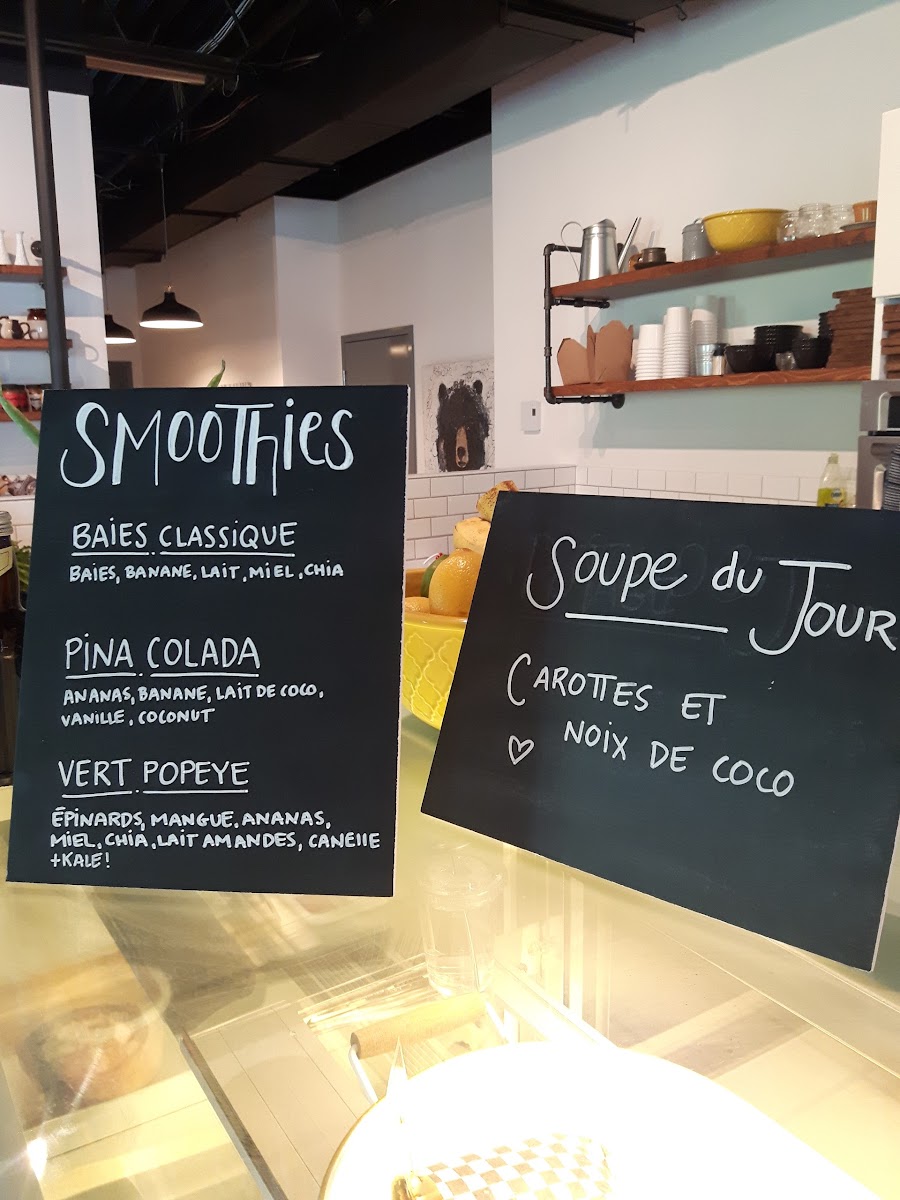 SMOOTHIES
BAIES CLASSIQUE
BAIES, BANANE, LAIT, MIEL, CHIA
PINA COLADA
ANANAS, BANANE, LAIT DE COCO,
VANILLE, COCONUT
VERT POPEYE
ÉPINARDS, MANGUE, ANANAS,
MIEL, CHIA, LAIT AMANDES, CANELLE
+KALE!
SOUPE DU JOUR
CAROTTES ET
NOIX DE COCO